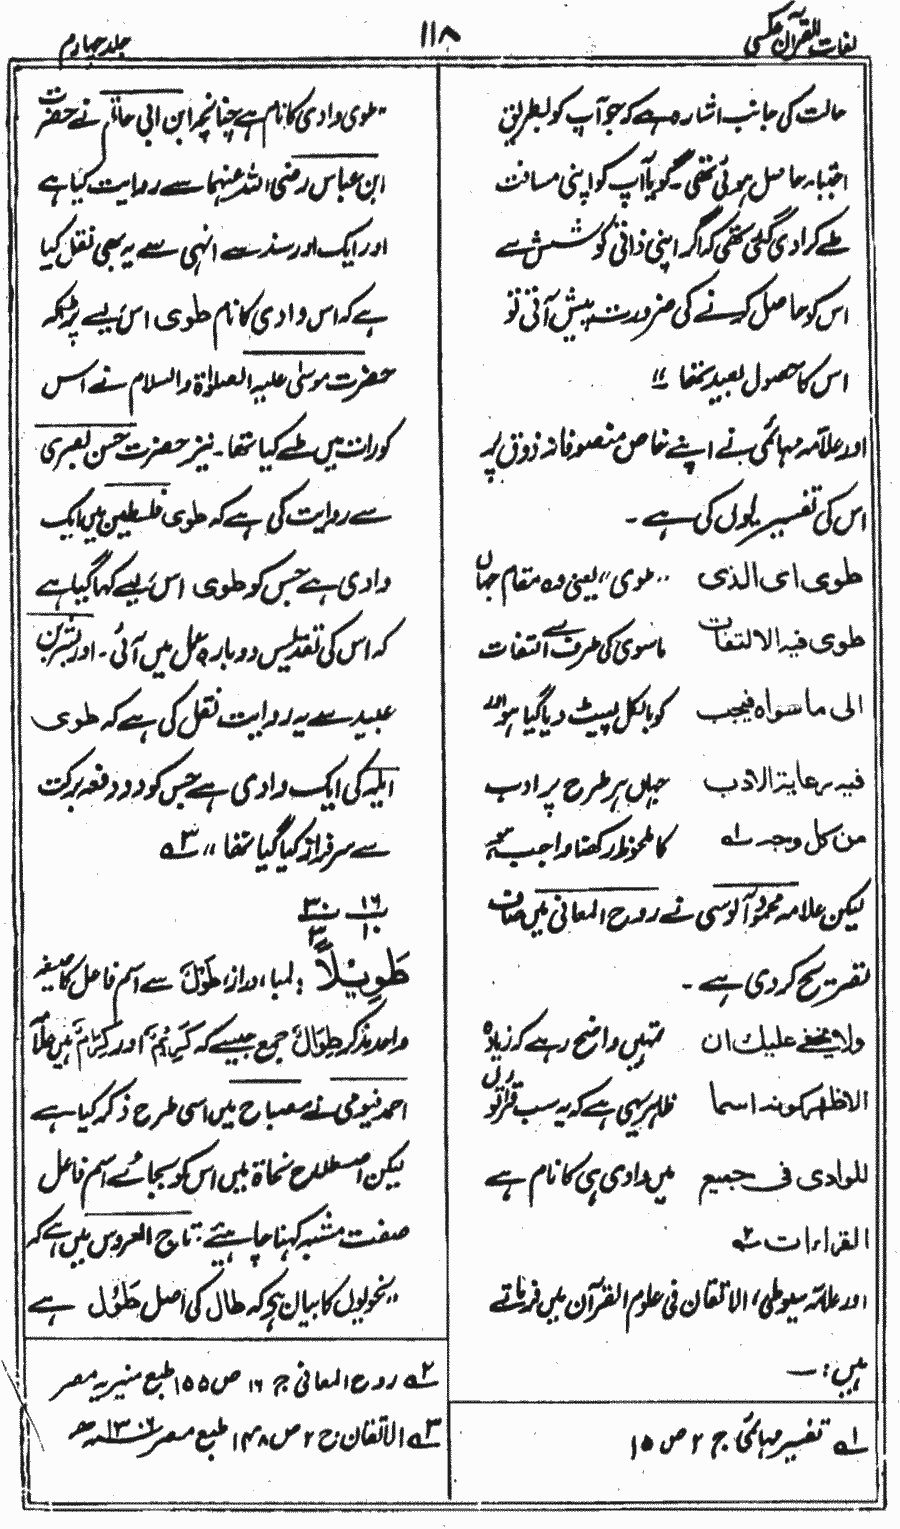 لغات القرآن عکسی
۱۱۸
جلد چہارم
حالت کی جانب اشارہ ہے کہ جو آپ کو بطریق
اجتباء حاصل ہوئی تھی۔ گویا آپ کو اپنی مسافت
طے کرادی گئی تھی کہ اگر اپنی ذاتی کوشش سے
اس کو حاصل کرنے کی ضرورت پیش آتی تو
اس کا حصول بعید تھا ؛؛
اور علامہ مہائمی نے اپنے خاص متصوفانہ ذوق پر
اس کی تفسیر یوں کی ہے ۔
طوی ای الذی
طوی فیہ الالتفات
الی ما سواہ فیجب
فیہ رعایۃ الادب
من کل وجہ لہ
"طوی" یعنی وہ مقام جہاں
ماسوی کی طرف سے التفات
کو بالکل لپیٹ دیا گیا ہو اور
جہاں ہر طرح پر ادب
کا ملحوظ رکھنا واجب ہے
لیکن علامہ محمود آلوسی نے روح المعانی میں صاف
تصریح کردی ہے ۔
ولا یخفی علیک ان
الاظھر کونہ اسما
للوادی فی جمیع
القراءات ۲ہ
تمہیں واضح رہے کہ زیادہ
ظاہر یہی ہے کہ یہ سب قراءتوں
میں وادی ہی کا نام ہے
اور علامہ سیوطی، الاتقان فی علوم القرآن میں فرماتے
ہیں : —
۱ہ تفسیر مہائمی ج ۲ ص ۱۵
"طوی وادی کا نام ہے چنانچہ ابن ابی حاتم نے حضرت
ابن عباس رضی اللہ عنہما سے روایت کیا ہے
اور ایک اور سند سے انہی سے یہ بھی نقل کیا
ہے کہ اس وادی کا نام طوی اس لیے پڑا کہ
حضرت موسی علیہ الصلاۃ والسلام نے اس
کو رات میں طے کیا تھا۔ نیز حضرت حسن بصری
سے روایت کی ہے کہ طوی فلسطین میں ایک
وادی ہے جس کو طوی اس لیے کہا گیا ہے
کہ اس کی تقدیس دوبارہ عمل میں آئی ۔ اور بشر بن
عبید سے یہ روایت نقل کی ہے کہ طوی
ایلہ کی ایک وادی ہے جس کو دو دفعہ برکت
سے سرفراز کیا گیا تھا ؛؛ ۳ہ
۱۶ ۳۰
۱۰ ۳
طَوِیلاً : لمبا ، دراز، طَوْلٌ سے اسم فاعل کا صیغہ
واحد مذکر طِوَالٌ جمع جیسے کہ کَرِیْمٌ اور کِرَامٌ ہیں علامہ
احمد فیومی نے مصباح میں اسی طرح ذکر کیا ہے
لیکن اصطلاح نحاۃ میں اس کو بجائے اسم فاعل
صفت مشبہ کہنا چاہیئے ۔ تاج العروس میں ہے کہ
"نحویوں کا بیان ہے کہ طال کی اصل طَوُلَ ہے
۲ہ روح المعانی ج ۱۶ ص ۱۵۵ طبع منیریہ مصر
۳ہ الاتقان : ج ۲ ص ۱۴۸ طبع مصر ۱۳۰۶ ھ